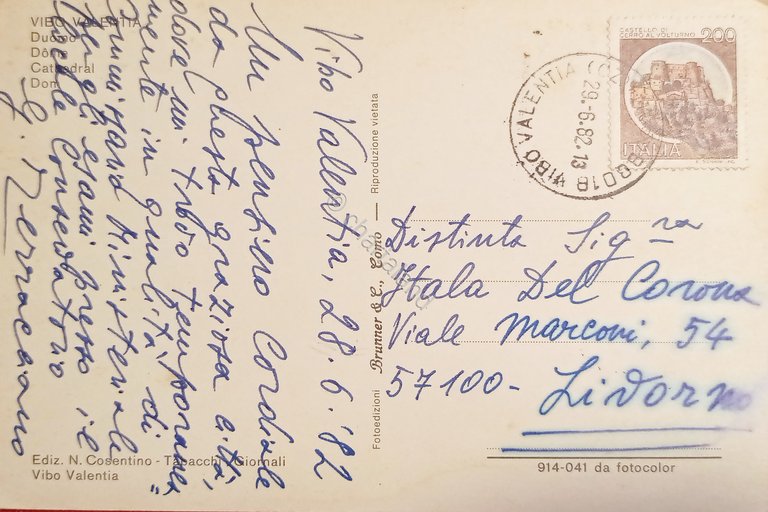 VIBO VALENTIA
Duomo
Dôme
Cathedral
Dom
Vibo Valentia, 28.6.'82
Un pensiero cordiale
da questa graziosa città,
dove mi trovo temporanea=
mente in qualità di
Commissario Ministeriale
per gli esami presso il
locale Conservatorio
G. Terracciano
Ediz. N. Cosentino - Tabacchi - Giornali
Vibo Valentia
Fotoedizioni Brunner & C., Como — Riproduzione vietata
CASTELLO DI
CERRO AL VOLTURNO 200
ITALIA
VIBO VALENTIA (CZ)
29.6.82.13
88018 VIBO VALENTIA
Distinta Sig.ra
Itala Del Corona
Viale Marconi, 54
57100 - Livorno
914-041 da fotocolor